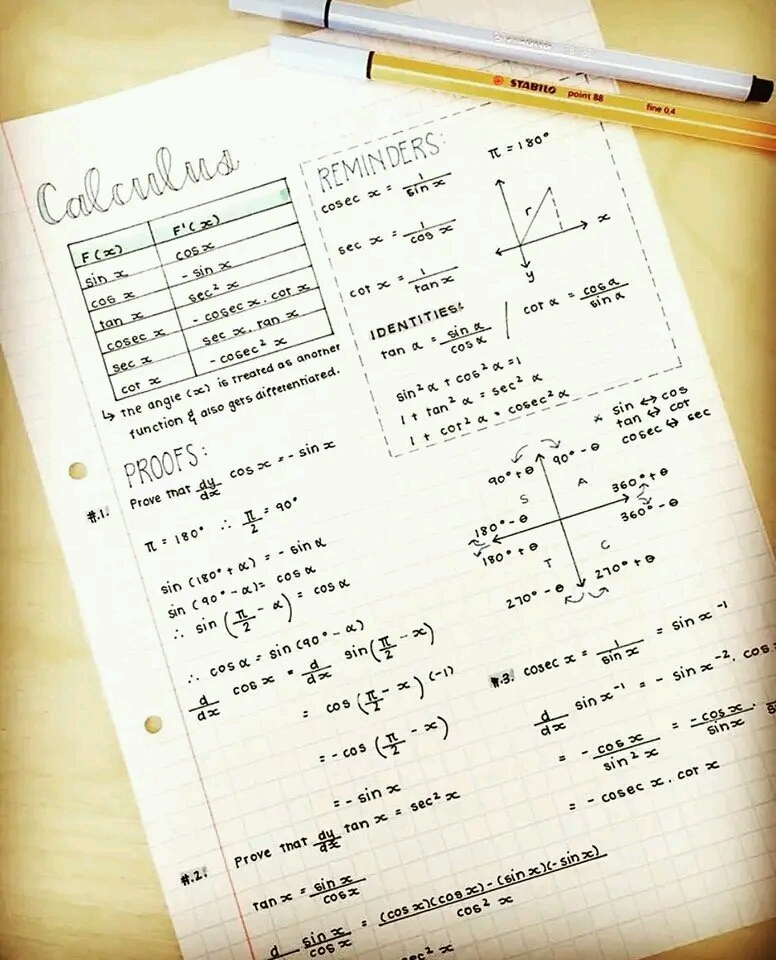 STABILO point 88 fine 0.4
Calculus
F(x) F'(x)
sin x cos x
cos x - sin x
tan x sec² x
cosec x - cosec x . cot x
sec x sec x . tan x
cot x - cosec² x
↳ The angle (x) is treated as another
function & also gets differentiated.
REMINDERS:
π = 180°
cosec x = 1/sin x
sec x = 1/cos x
cot x = 1/tan x
r
x
y
IDENTITIES:
tan α = sin α/cos α / cot α = cos α/sin α
sin² α + cos² α = 1
1 + tan² α = sec² α
1 + cot² α = cosec² α
* sin ↔ cos
tan ↔ cot
cosec ↔ sec
90° + θ 90° - θ
S A
360° + θ
180° - θ 360° - θ
180° + θ
T C
270° - θ 270° + θ
PROOFS:
#.1. Prove that dy/dx cos x = - sin x
π = 180° ∴ π/2 = 90°
sin (180° + α) = - sin α
sin (90° - α) = cos α
∴ sin (π/2 - α) = cos α
∴ cos α = sin (90° - α)
d/dx cos x = d/dx sin (π/2 - x)
= cos (π/2 - x) (-1)
= - cos (π/2 - x)
= - sin x
#.2. Prove that dy/dx tan x = sec² x
tan x = sin x/cos x
d sin x/cos x = (cos x)(cos x) - (sin x)(-sin x)/cos² x
sec² x
#.3. cosec x = 1/sin x = sin x⁻¹
d/dx sin x⁻¹ = - sin x⁻² . cos
= - cos x/sin² x = - cos x/sin x .
= - cosec x . cot x